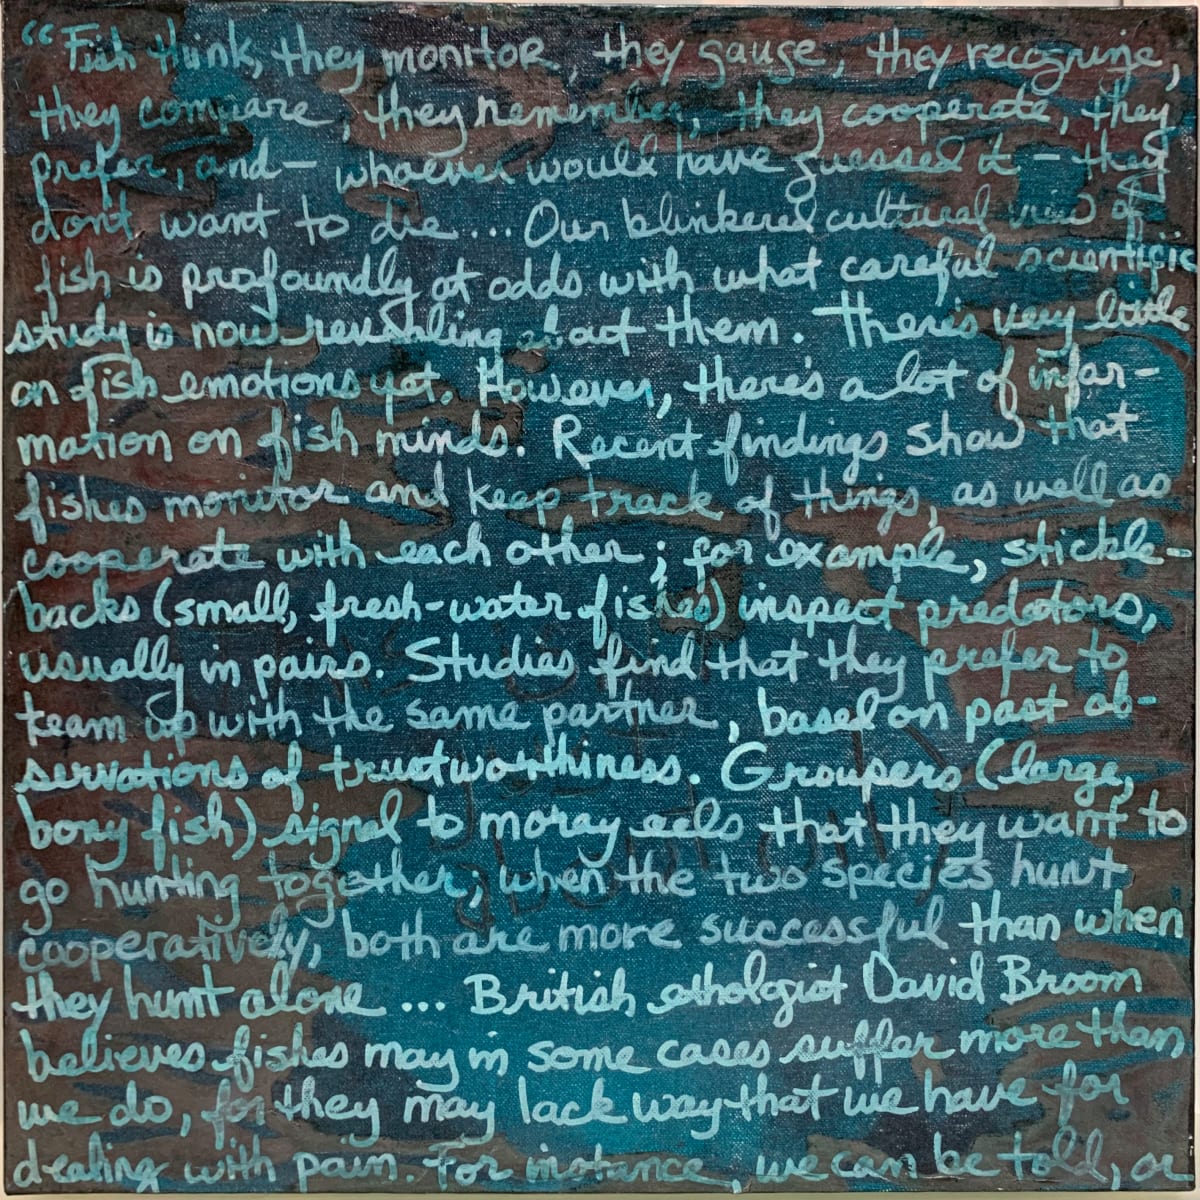 “Fish think, they monitor, they gauge, they recognize,
they compare, they remember, they cooperate, they
prefer, and – whoever would have guessed it – they
don't want to die.... Our blinkered cultural view of
fish is profoundly at odds with what careful scientific
study is now revealing about them. There's very little
on fish emotions yet. However, there's a lot of infor-
mation on fish minds. Recent findings show that
fishes monitor and keep track of things, as well as
cooperate with each other; for example, stickle-
backs (small, fresh-water fishes) inspect predators,
usually in pairs. Studies find that they prefer to
team up with the same partner, based on past ob-
servations of trustworthiness. Groupers (large,
bony fish) signal to moray eels that they want to
go hunting together; when the two species hunt
cooperatively, both are more successful than when
they hunt alone ... British ethologist David Broom
believes fishes may in some cases suffer more than
we do, for they may lack way that we have for
dealing with pain. For instance, we can be told, or